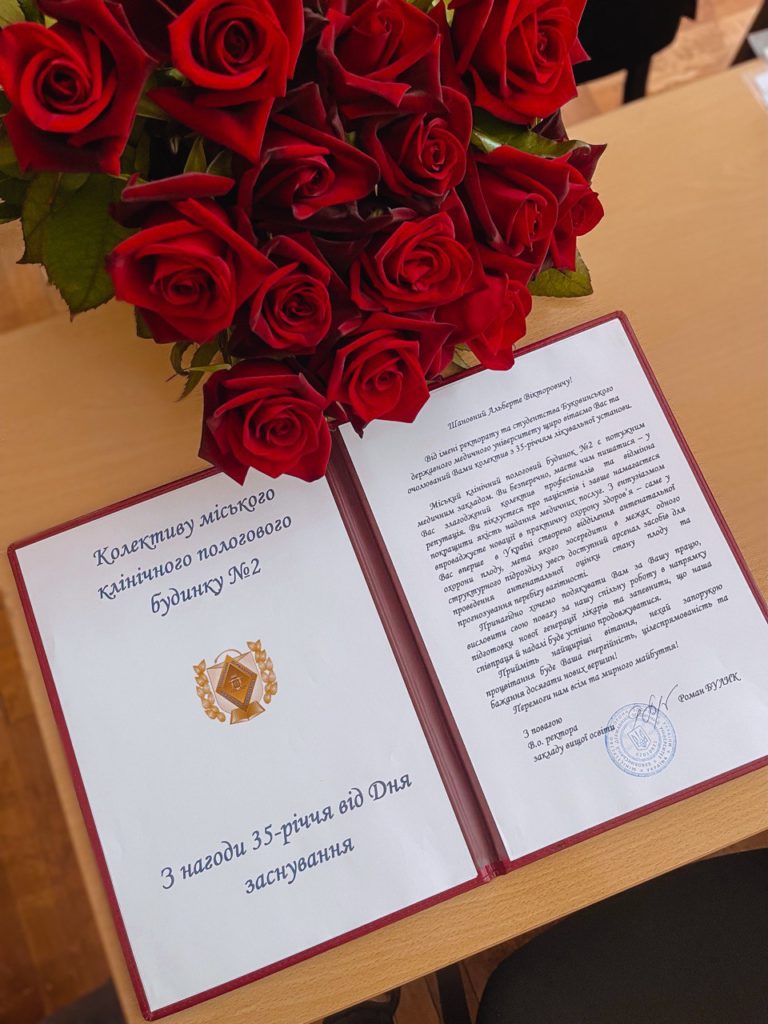 Колективу міського
клінічного пологового
будинку №2
З нагоди 35-річчя від Дня
заснування
Шановний Альберте Вікторовичу!
Від імені ректорату та студентства Буковинського
державного медичного університету щиро вітаємо Вас та
очолюваний Вами колектив з 35-річчям лікувальної установи.
Міський клінічний пологовий будинок №2 є потужним
медичним закладом. Ви безперечно, маєте чим пишатися – у
Вас злагоджений колектив професіоналів та відмінна
репутація. Ви піклуєтеся про пацієнтів і завше намагаєтеся
покращити якість надання медичних послуг. З ентузіазмом
впроваджуєте новації в практичну охорону здоров'я – саме у
Вас вперше в Україні створено відділення антенатальної
охорони плоду, мета якого зосередити в межах одного
структурного підрозділу увесь доступний арсенал засобів для
проведення антенатальної оцінки стану плоду та
прогнозування перебігу вагітності.
Принагідно хочемо подякувати Вам за Вашу працю,
висловити свою повагу за нашу спільну роботу в напрямку
підготовки нової генерації лікарів та запевнити, що наша
співпраця й надалі буде успішно продовжуватися.
Прийміть найщиріші вітання, нехай запорукою
процвітання буде Ваша енергійність, цілеспрямованість та
бажання досягати нових вершин!
Перемоги нам всім та мирного майбуття!
З повагою
В.о. ректора
закладу вищої освіти
Роман БУЛИК